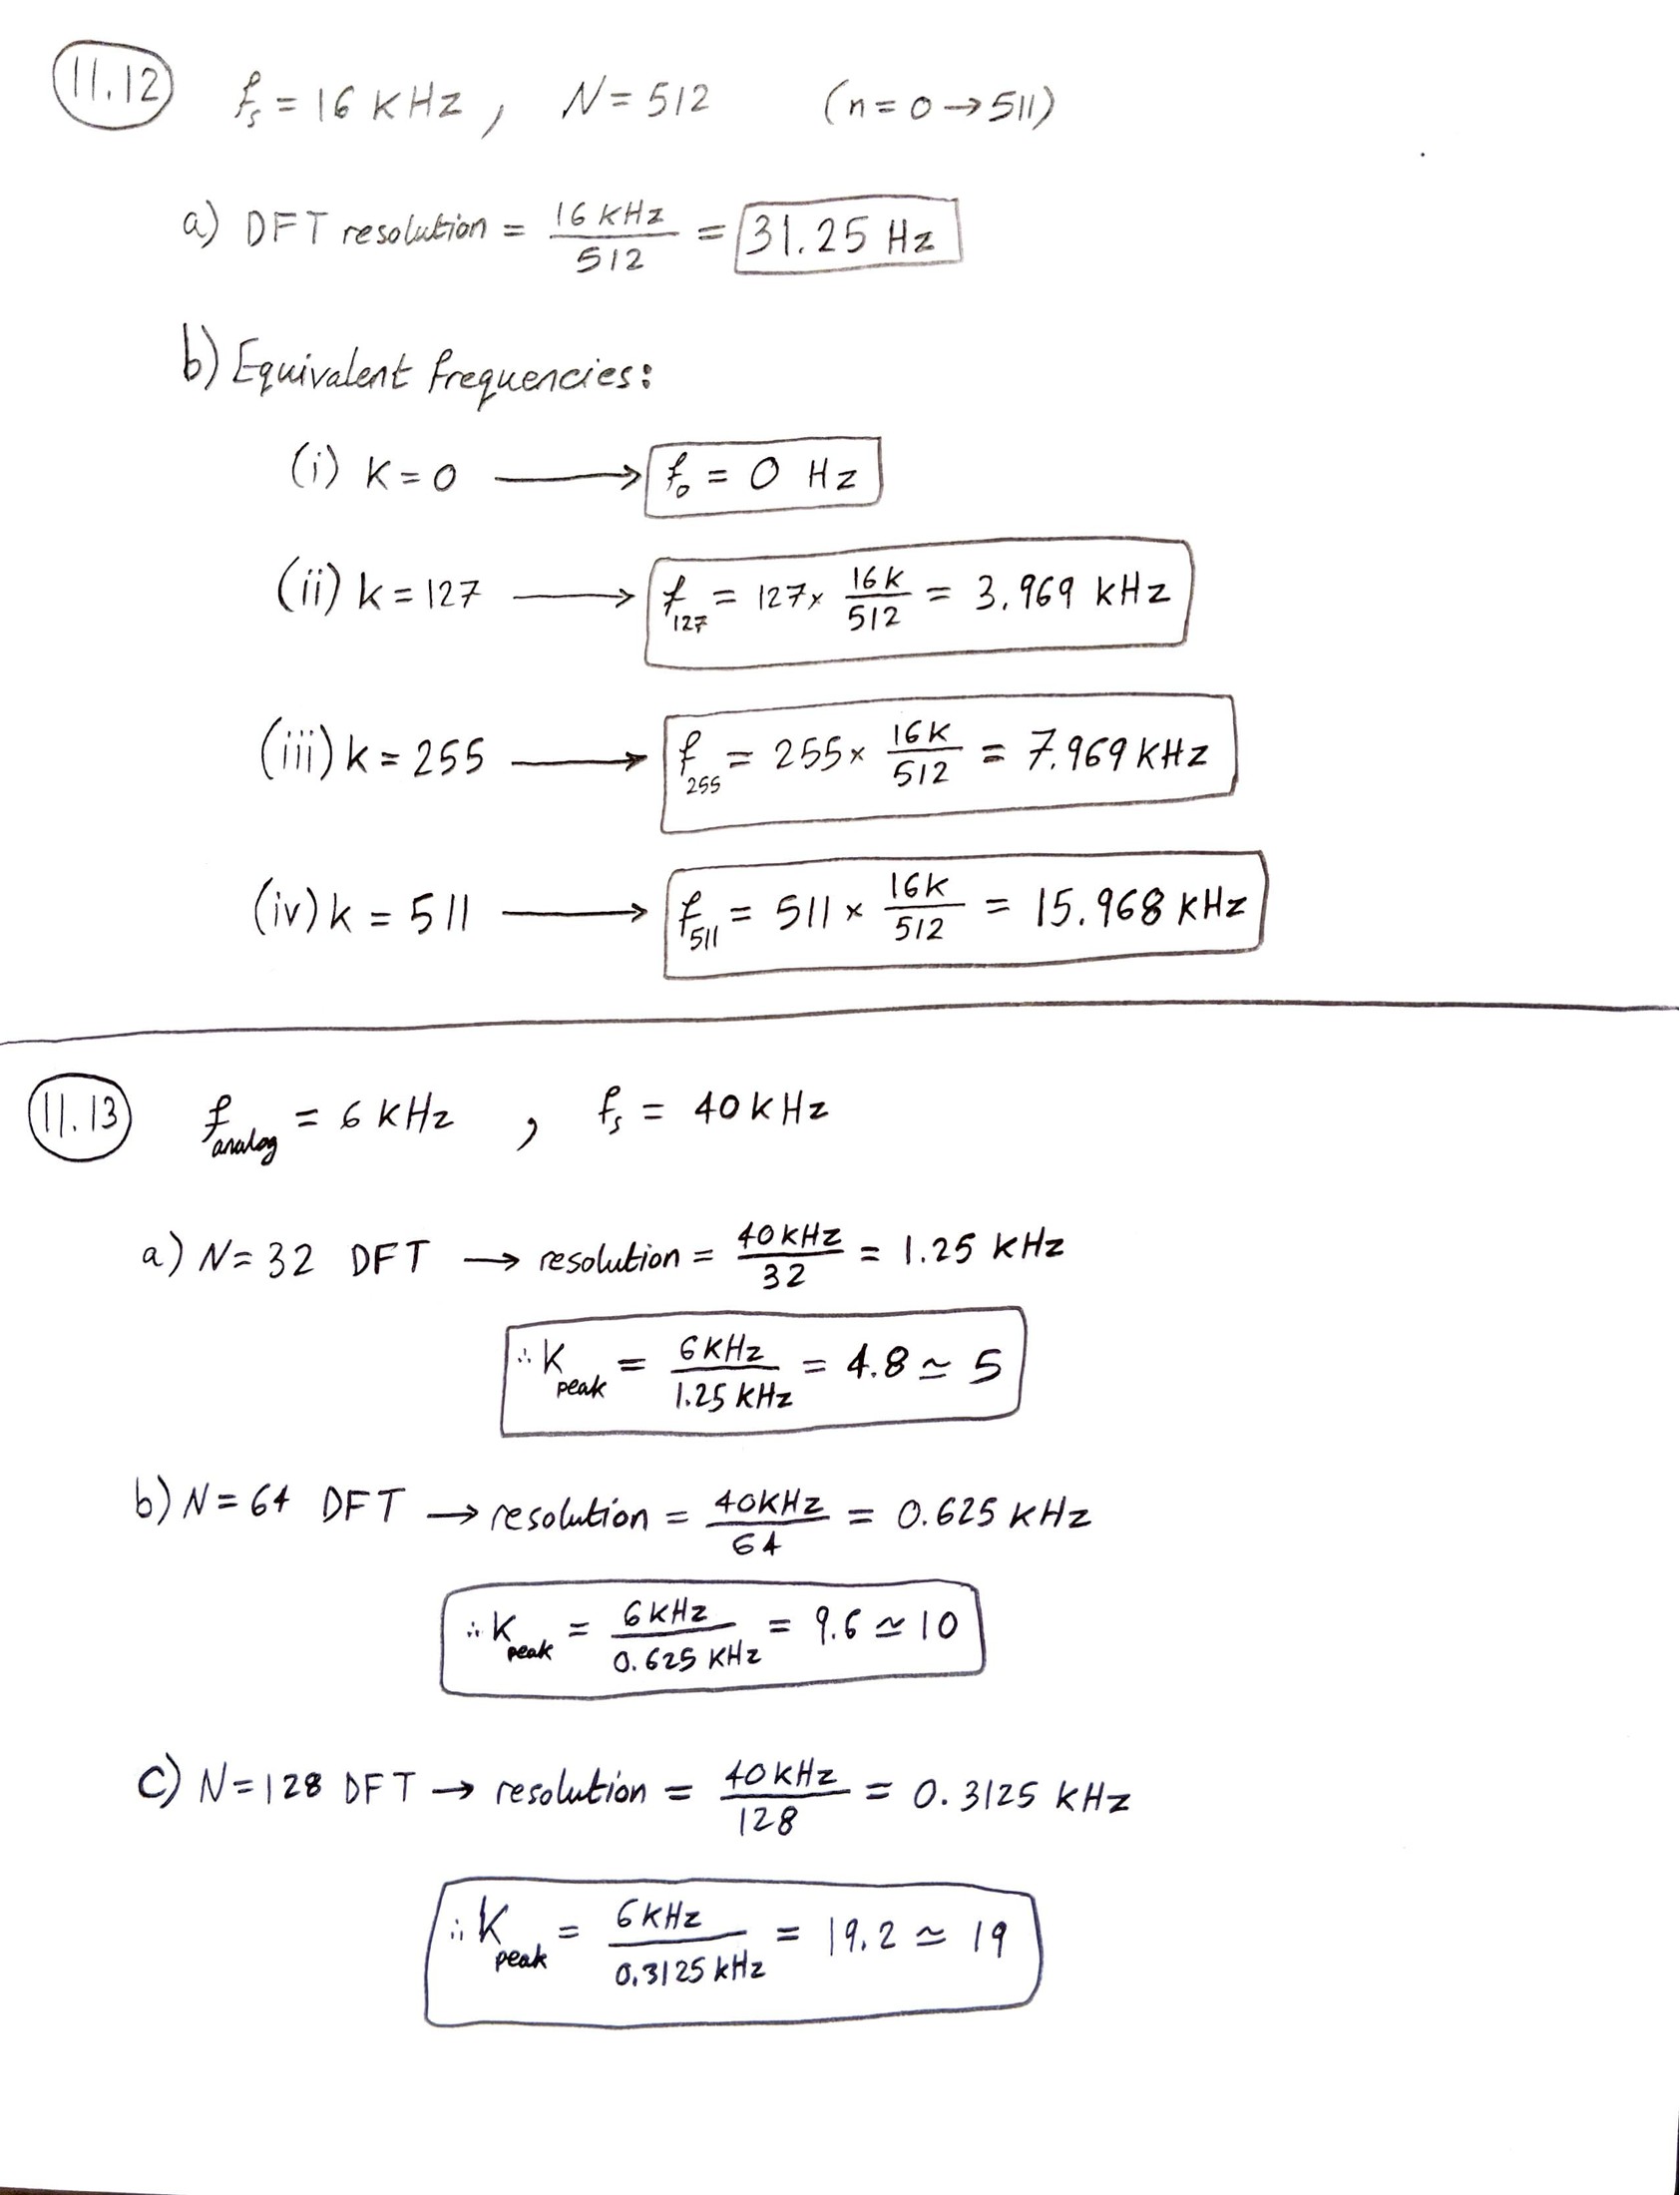 11.12 fs = 16 KHz, N = 512 (n = 0 → 511)
a) DFT resolution = 16 KHz / 512 = 31.25 Hz
b) Equivalent frequencies:
(i) K = 0 → f0 = 0 Hz
(ii) k = 127 → f127 = 127 x 16K / 512 = 3.969 kHz
(iii) k = 255 → f255 = 255 x 16K / 512 = 7.969 KHz
(iv) k = 511 → f511 = 511 x 16K / 512 = 15.968 KHz
11.13 fanalog = 6 KHz , fs = 40 kHz
a) N = 32 DFT → resolution = 40 KHz / 32 = 1.25 KHz
∴ Kpeak = 6 KHz / 1.25 KHz = 4.8 ≃ 5
b) N = 64 DFT → resolution = 40KHz / 64 = 0.625 KHz
∴ Kpeak = 6 KHz / 0.625 KHz = 9.6 ≃ 10
c) N = 128 DFT → resolution = 40 KHz / 128 = 0.3125 KHz
∴ Kpeak = 6 KHz / 0.3125 kHz = 19.2 ≃ 19